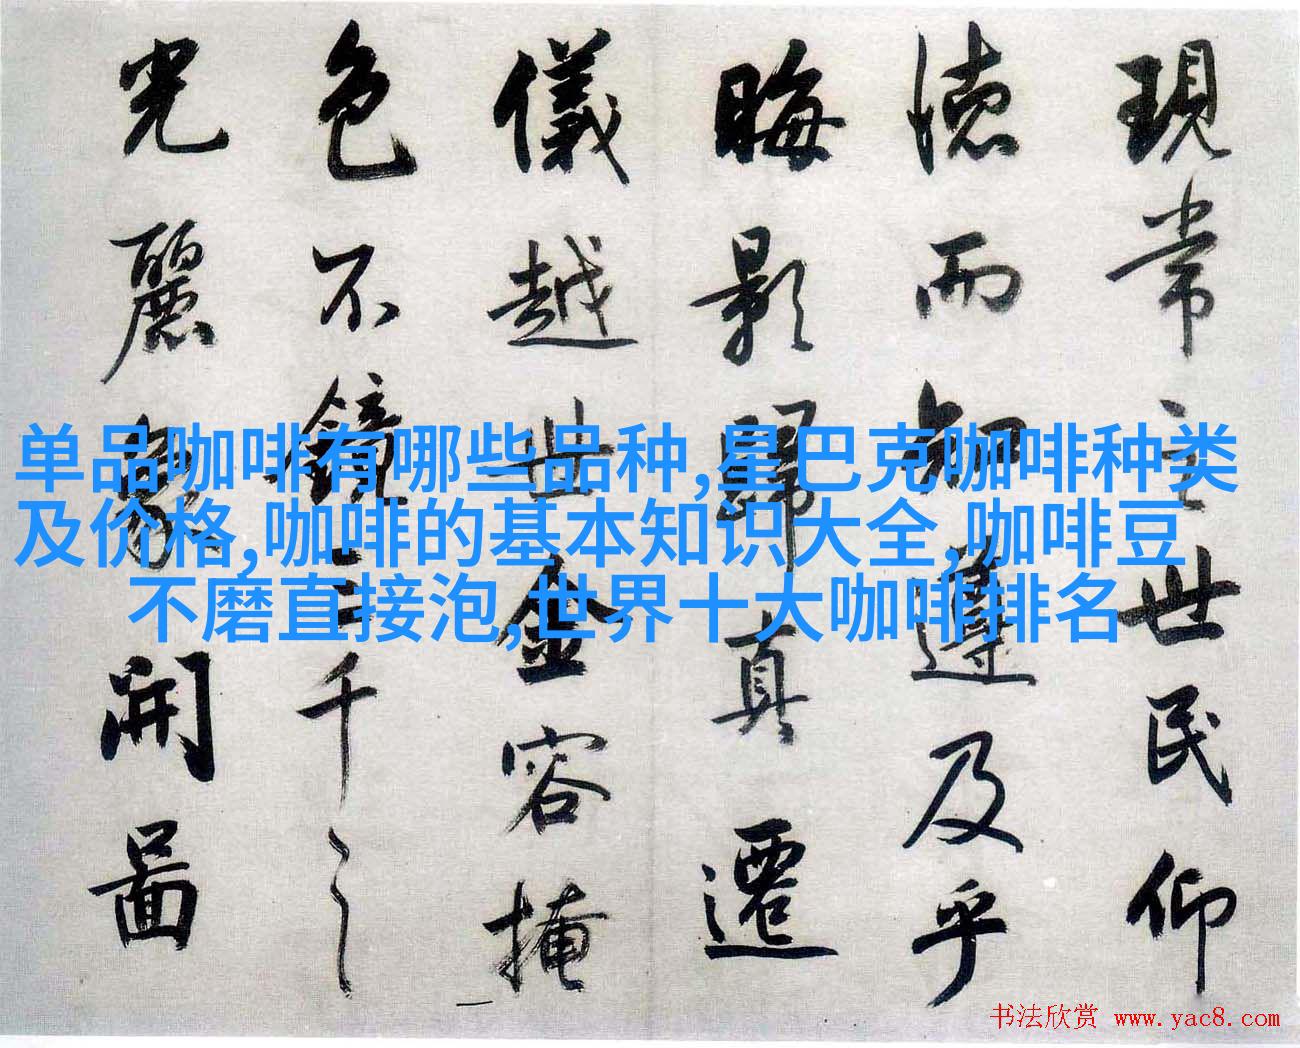 現常之世民仰
德而知遵及乎
晦影歸真遷
儀越世金容掩
色不鏡三千之
光麗象開圖
单品咖啡有哪些品种,星巴克咖啡种类
及价格,咖啡的基本知识大全,咖啡豆
不磨直接泡,世界十大咖啡排名
书法欣赏 www.yac8.com